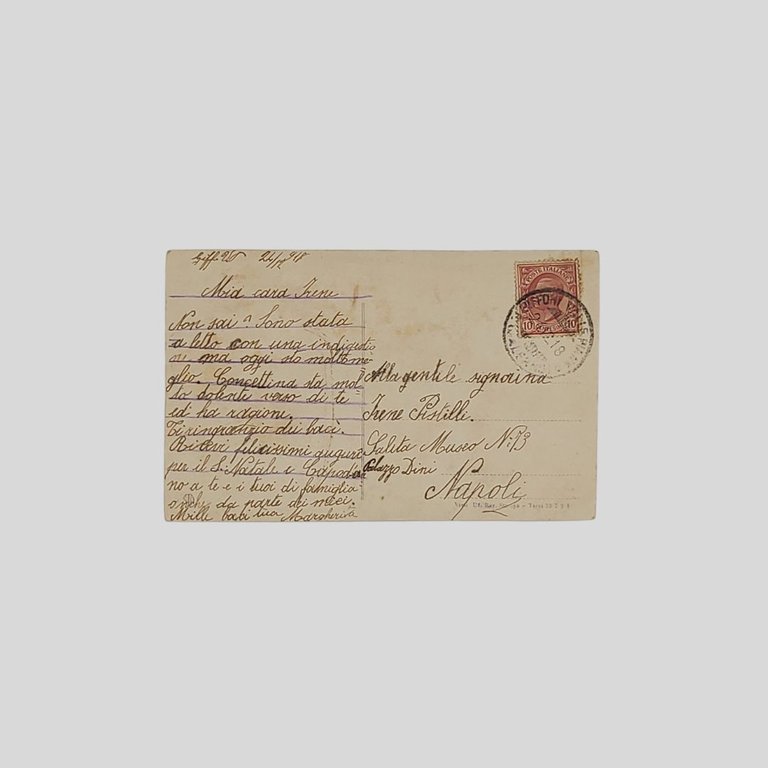 24/12 918
Mia cara Irene
Non sai? Sono stata
a letto con una indigestio
ne ma oggi sto molto me
glio. Concettina sta mol
to dolente verso di te
ed ha ragione.
Ti ringrazio dei baci.
Ricevi felicissimi auguri
per il S. Natale e Capodan
no a te e i tuoi di famiglia
anche da parte dei miei.
Mille baci tua Margherita
POSTE ITALIANE
10 10
GIFFONI
18
Alla gentile signorina
Irene Pistilli.
Salita Museo N. 13
Palazzo Dini
Napoli